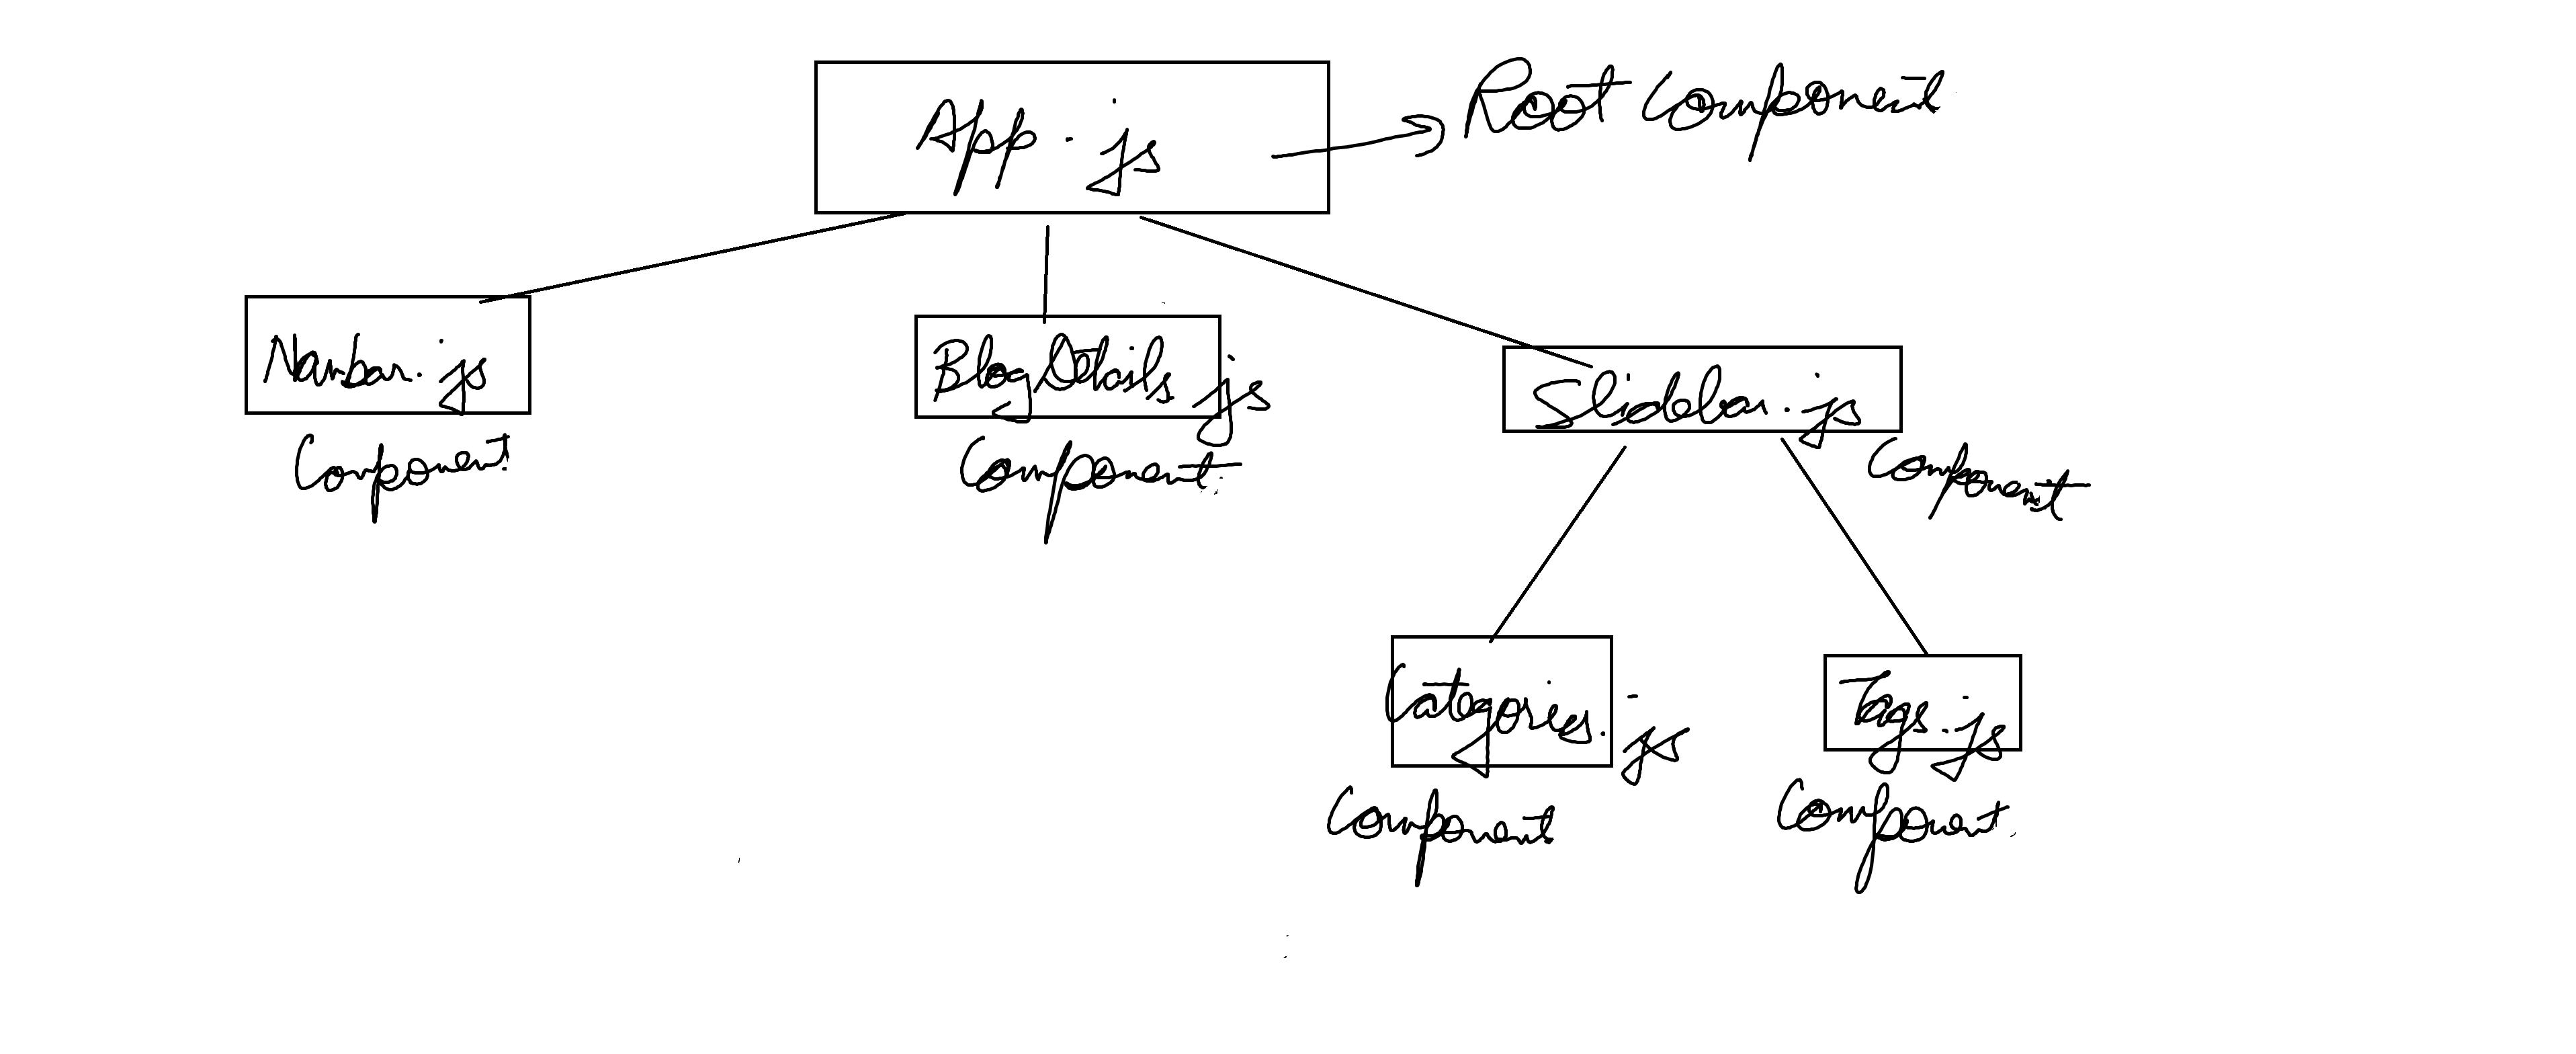 App.js
Root Component
Navbar.js
Component
BlogDetails.js
Component
Slidebar.js
Component
Categories.js
Component
Tags.js
Component